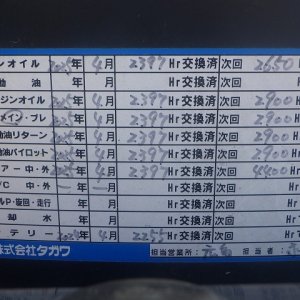 ンオイル 2025年 4月 2397Hr交換済 次回 2650H
油 年 月 Hr交換済 次回 H
ジンオイル 2025年 4月 2397Hr交換済 次回 2900H
メイン・プレ 2025年 4月 2397Hr交換済 次回 2900H
油リターン 2025年 4月 2397Hr交換済 次回 2900H
油パイロット 2025年 4月 2397Hr交換済 次回 2900H
アー 中・外 2025年 4月 2397Hr交換済 次回 4400H
C 中・外 ー年 ー月 Hr交換済 次回 H
ルP・旋回・走行 年 月 Hr交換済 次回 H
却 水 年 月 Hr交換済 次回 H
テリー 2024年 4月 2255Hr交換済 次回 Hr
株式会社タガワ 担当営業所: 広島 担当者: